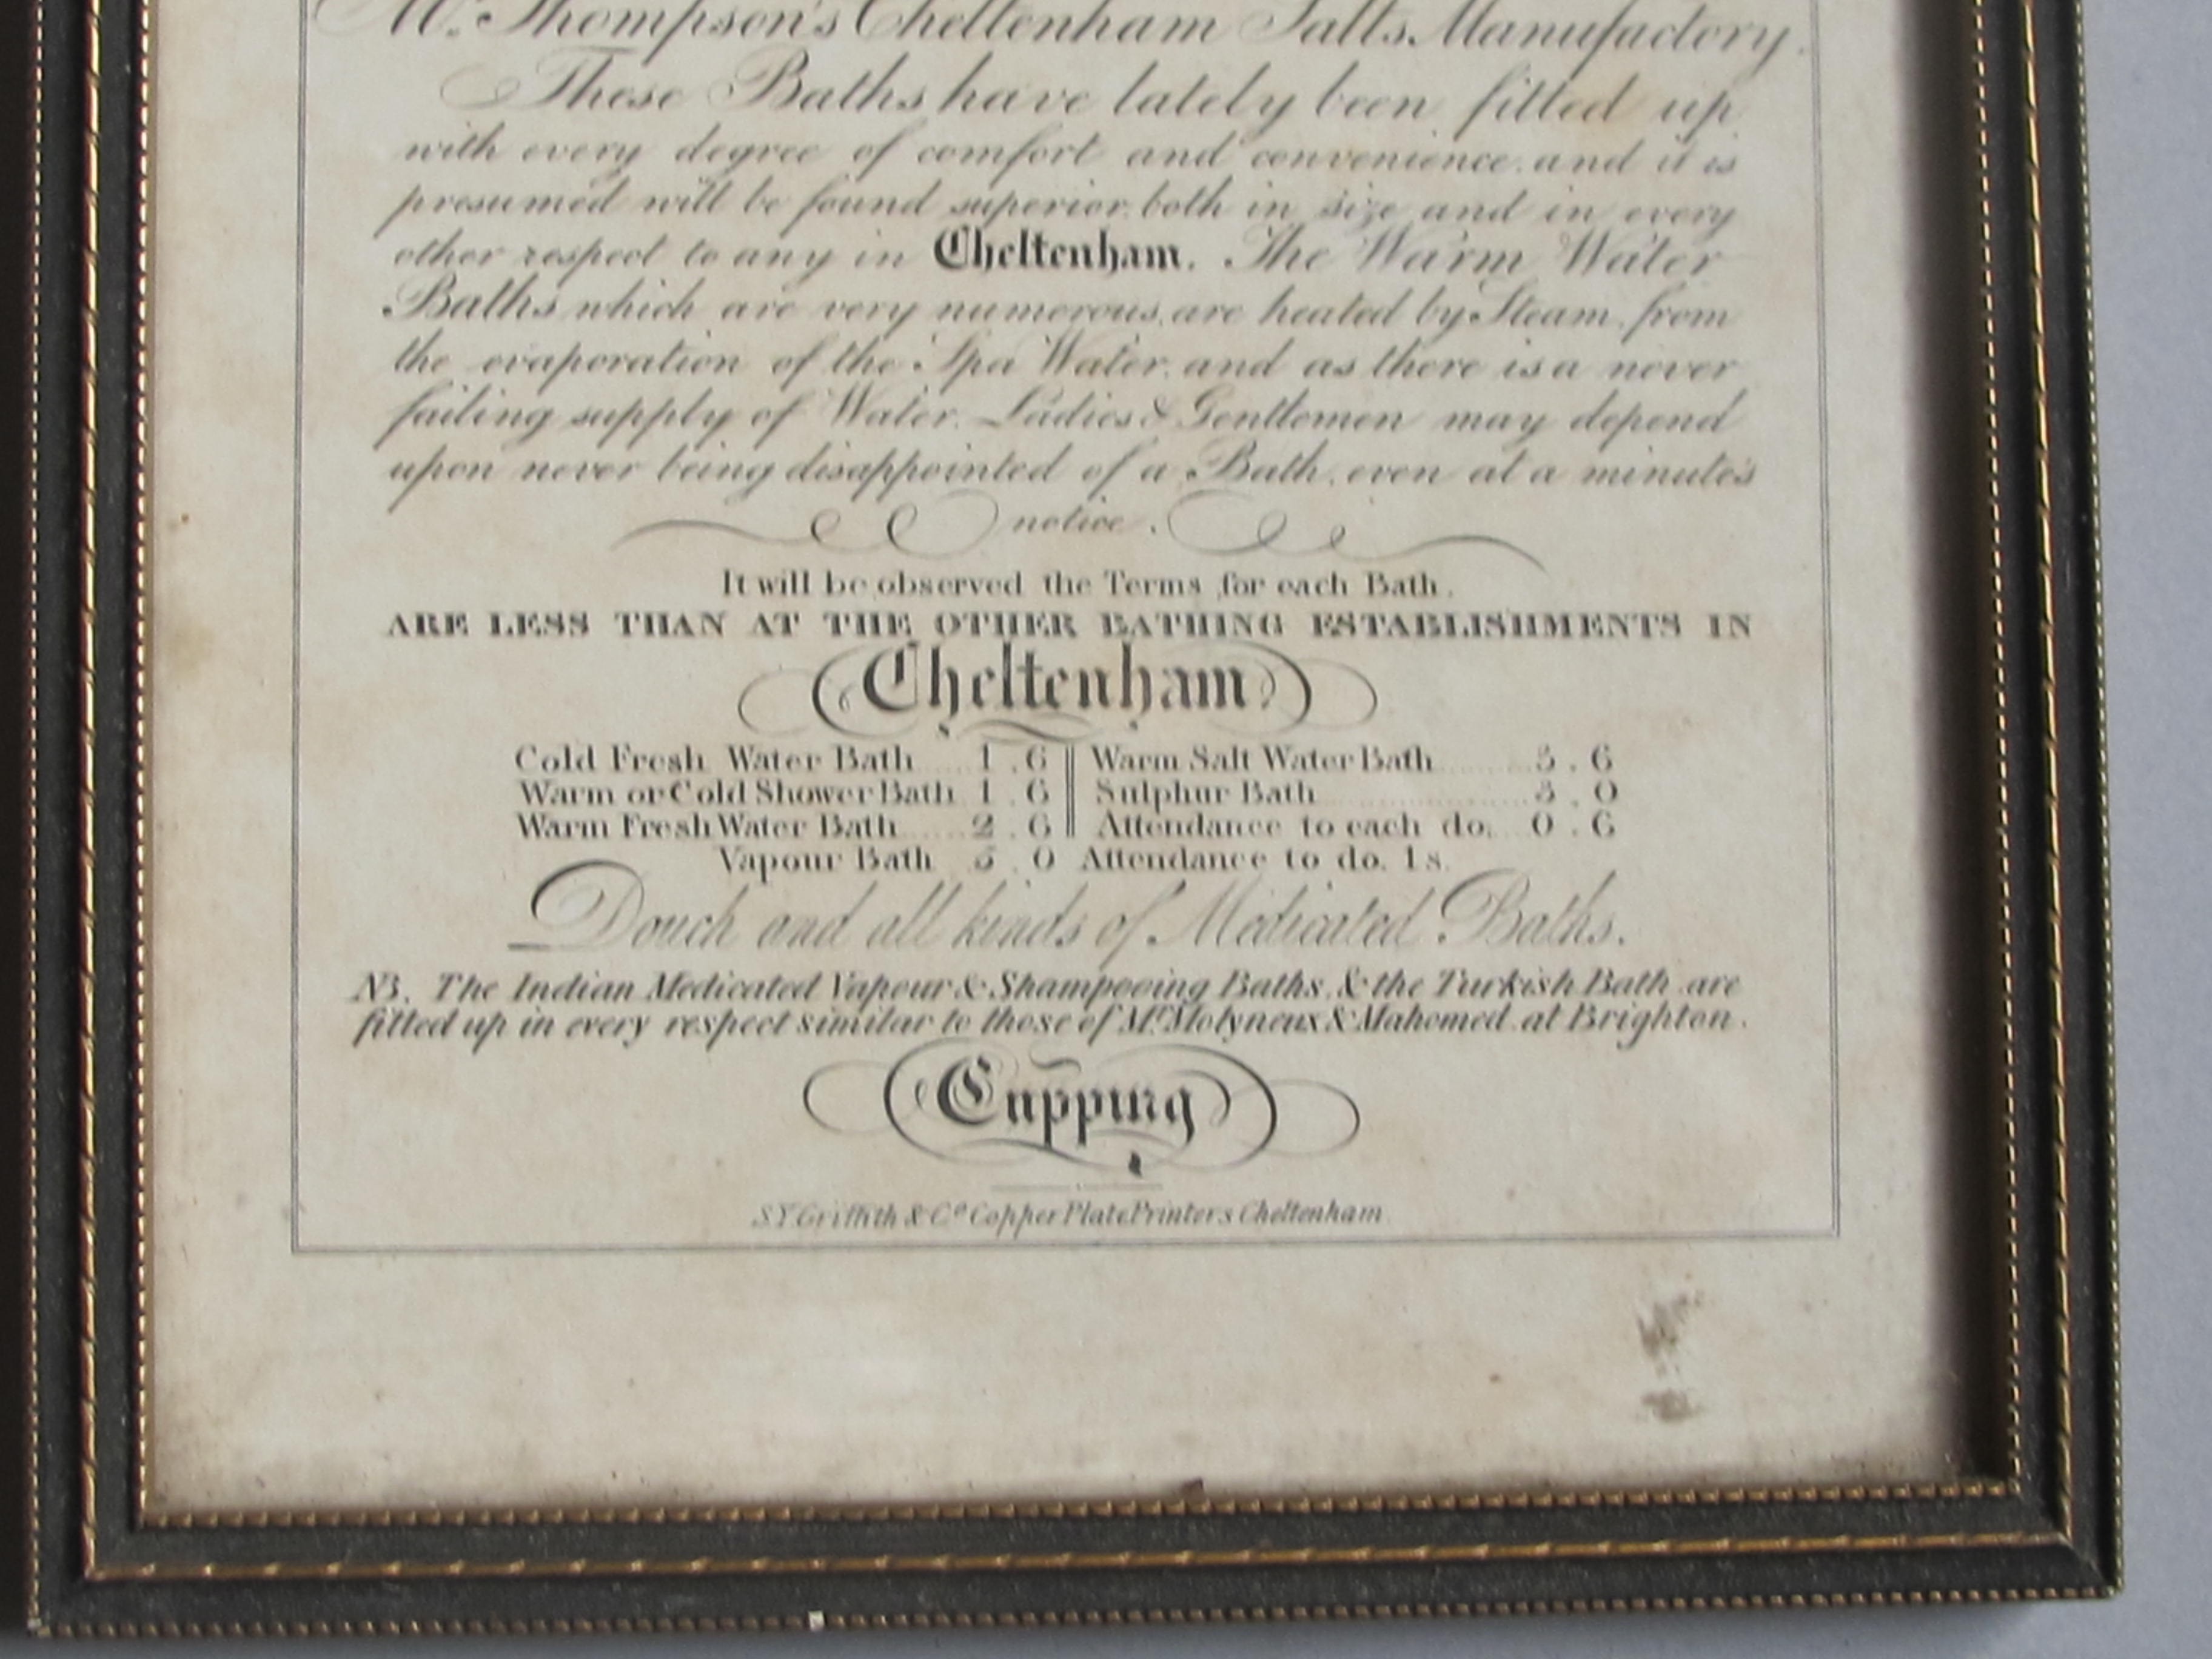 Mr. Thompson's Cheltenham Salts Manufactory.
These Baths have lately been fitted up
with every degree of comfort and convenience, and it is
presumed will be found superior, both in size and in every
other respect to any in Cheltenham. The Warm Water
Baths which are very numerous, are heated by Steam, from
the evaporation of the Spa Water, and as there is a never
failing supply of Water, Ladies & Gentlemen may depend
upon never being disappointed of a Bath, even at a minute's
notice.
It will be observed the Terms for each Bath,
ARE LESS THAN AT THE OTHER BATHING ESTABLISHMENTS IN
Cheltenham
Cold Fresh Water Bath 1.6 Warm Salt Water Bath 3.6
Warm or Cold Shower Bath 1.6 Sulphur Bath 3.0
Warm Fresh Water Bath 2.6 Attendance to each do. 0.6
Vapour Bath 5.0 Attendance to do. 1s.
Douch and all kinds of Medicated Baths.
NB. The Indian Medicated Vapour & Shampooing Baths, & the Turkish Bath are
fitted up in every respect similar to those of Mr. Molyneux & Mahomed at Brighton.
Cupping
S.Y. Griffith & Co. Copper Plate Printers Cheltenham